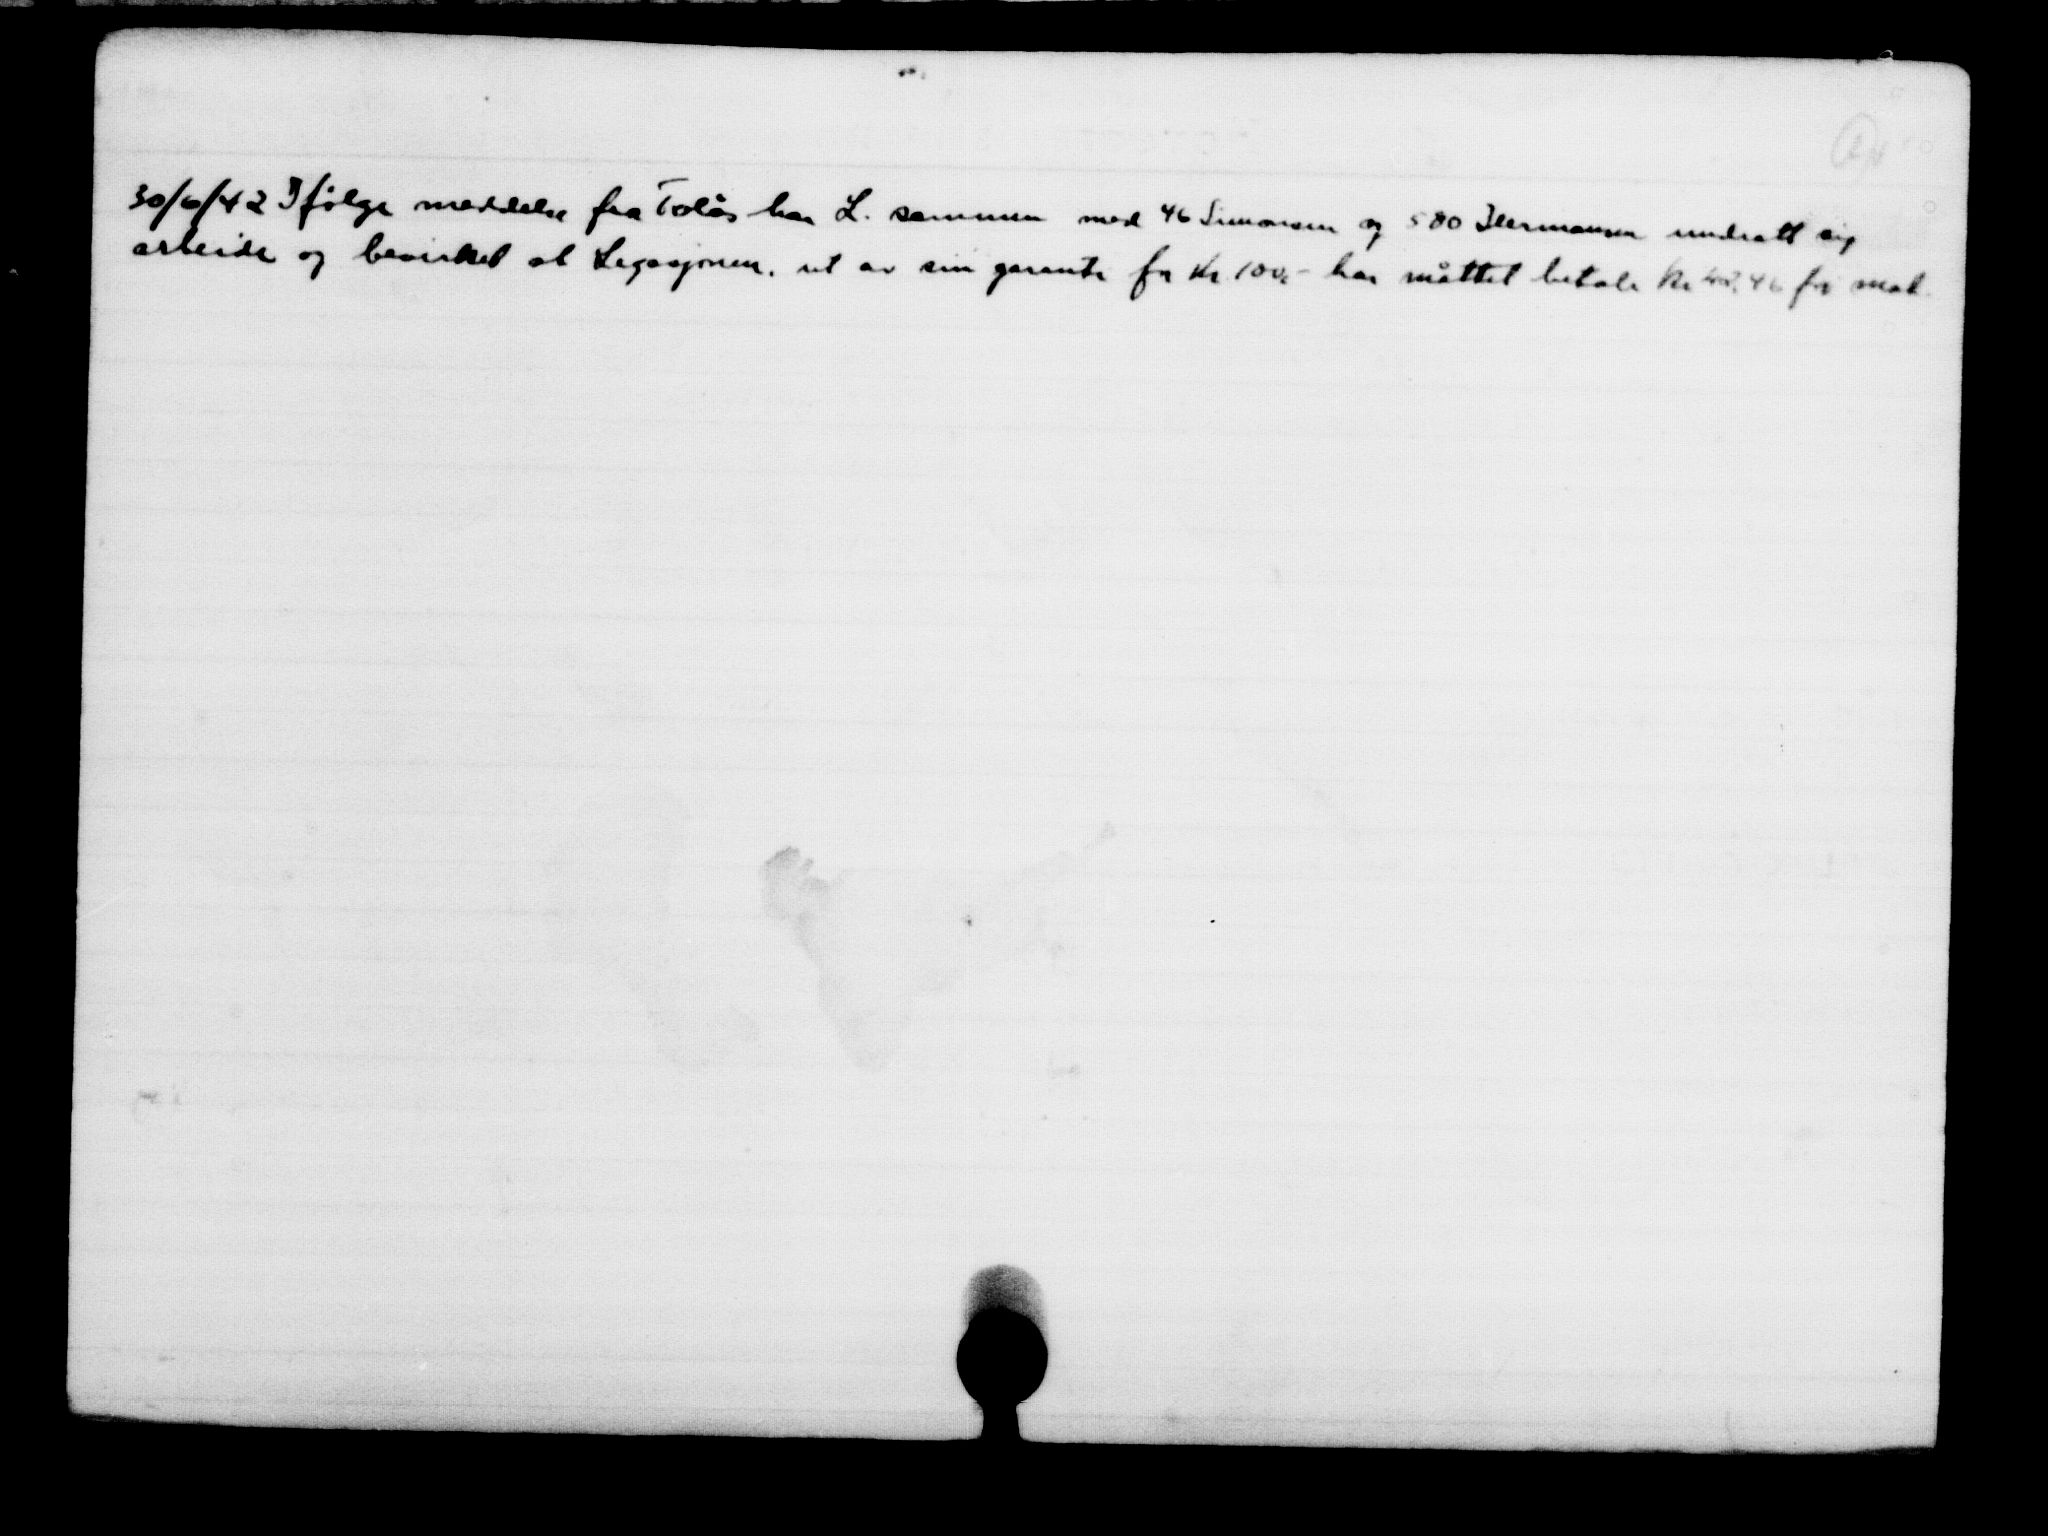 30/6/42 Ifølge meddelse fra Tolås har L. sammen med 46 Simonsen og 580 Hermansen undratt sig
arbeide og bevirket at Legasjonen, ut av sin garanti for Kr. 100,- har måttet betale Kr for mat.